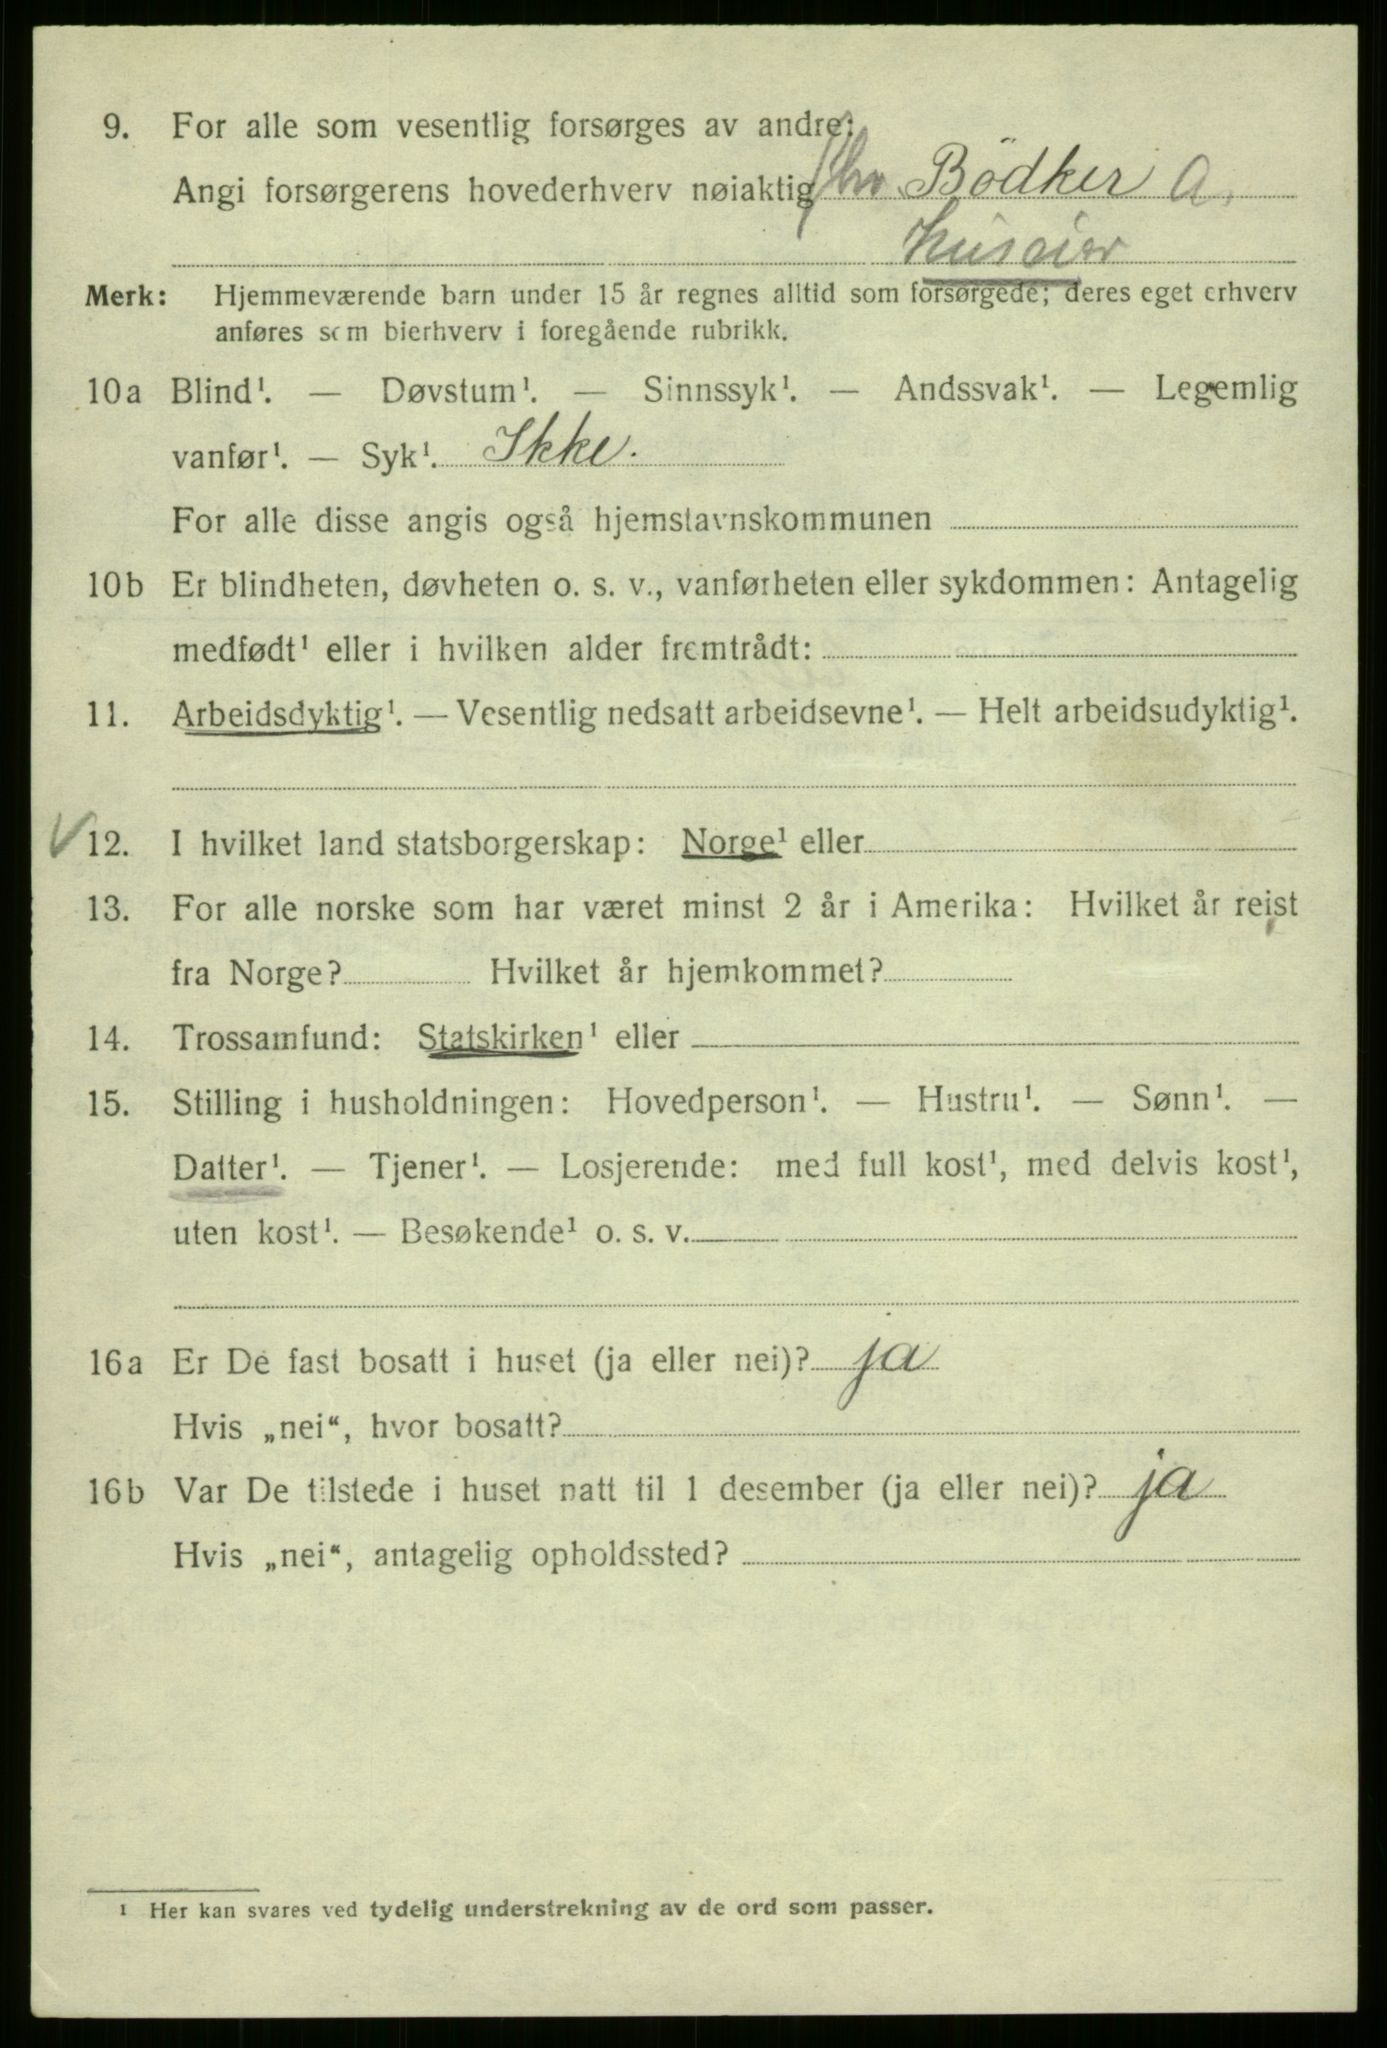 9. For alle som vesentlig forsørges av andre:
Angi forsørgerens hovederhverv nøiaktig Bödker A,
huseier
Merk: Hjemmeværende barn under 15 år regnes alltid som forsørgede; deres eget erhverv
anføres som bierhverv i foregående rubrikk.
10a Blind¹. — Døvstum¹. — Sinnssyk¹. — Andssvak¹. — Legemlig
vanfør¹. — Syk¹. Ikke.
For alle disse angis også hjemstavnskommunen
10b Er blindheten, døvheten o. s. v., vanførheten eller sykdommen: Antagelig
medfødt¹ eller i hvilken alder fremtrådt:
11. Arbeidsdyktig¹. — Vesentlig nedsatt arbeidsevne¹. — Helt arbeidsudyktig¹.
V 12. I hvilket land statsborgerskap: Norge¹ eller
13. For alle norske som har været minst 2 år i Amerika: Hvilket år reist
fra Norge? Hvilket år hjemkommet?
14. Trossamfund: Statskirken¹ eller
15. Stilling i husholdningen: Hovedperson¹. — Hustru¹. — Sønn¹. —
Datter¹. — Tjener¹. — Losjerende: med full kost¹, med delvis kost¹,
uten kost¹. — Besøkende¹ o. s. v.
16a Er De fast bosatt i huset (ja eller nei)? ja
Hvis „nei“, hvor bosatt?
16b Var De tilstede i huset natt til 1 desember (ja eller nei)? ja
Hvis „nei“, antagelig opholdssted?
1 Her kan svares ved tydelig understrekning av de ord som passer.